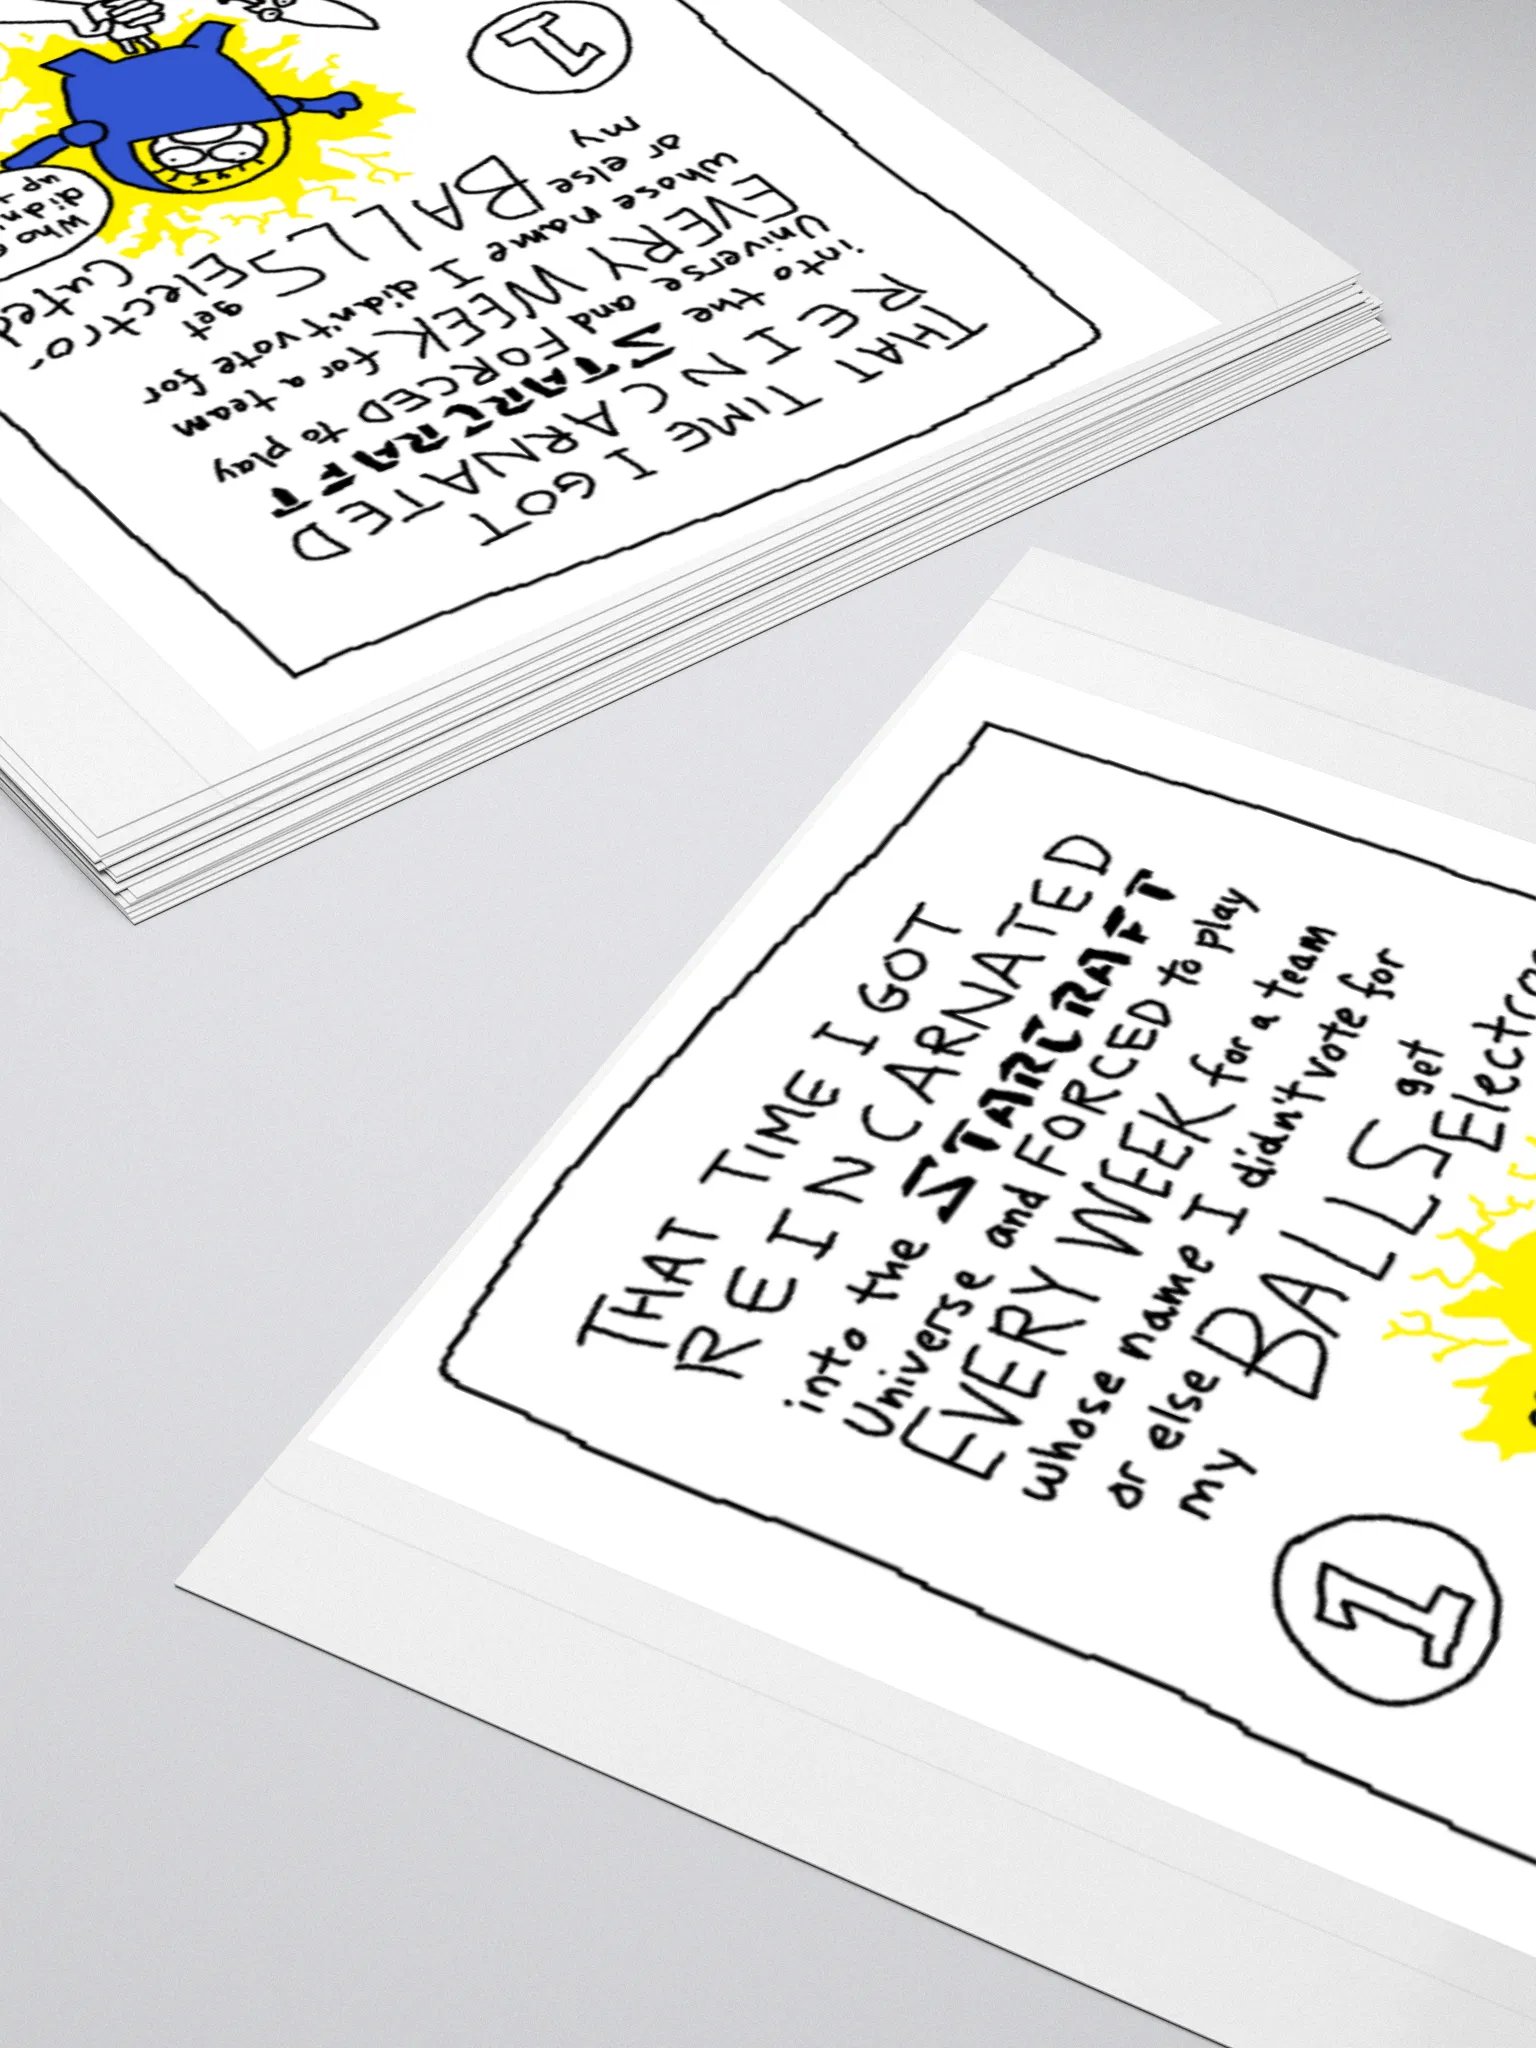 THAT TIME I GOT
REINCARNATED
into the STARCRAFT
Universe and FORCED to play
EVERY WEEK for a team
whose name I didn't vote for
or else get
my BALLS Electro-
Cuted
1
THAT TIME I GOT
REINCARNATED
into the STARCRAFT
Universe and FORCED to play
EVERY WEEK for a team
whose name I didn't vote for
or else get
my BALLS
1